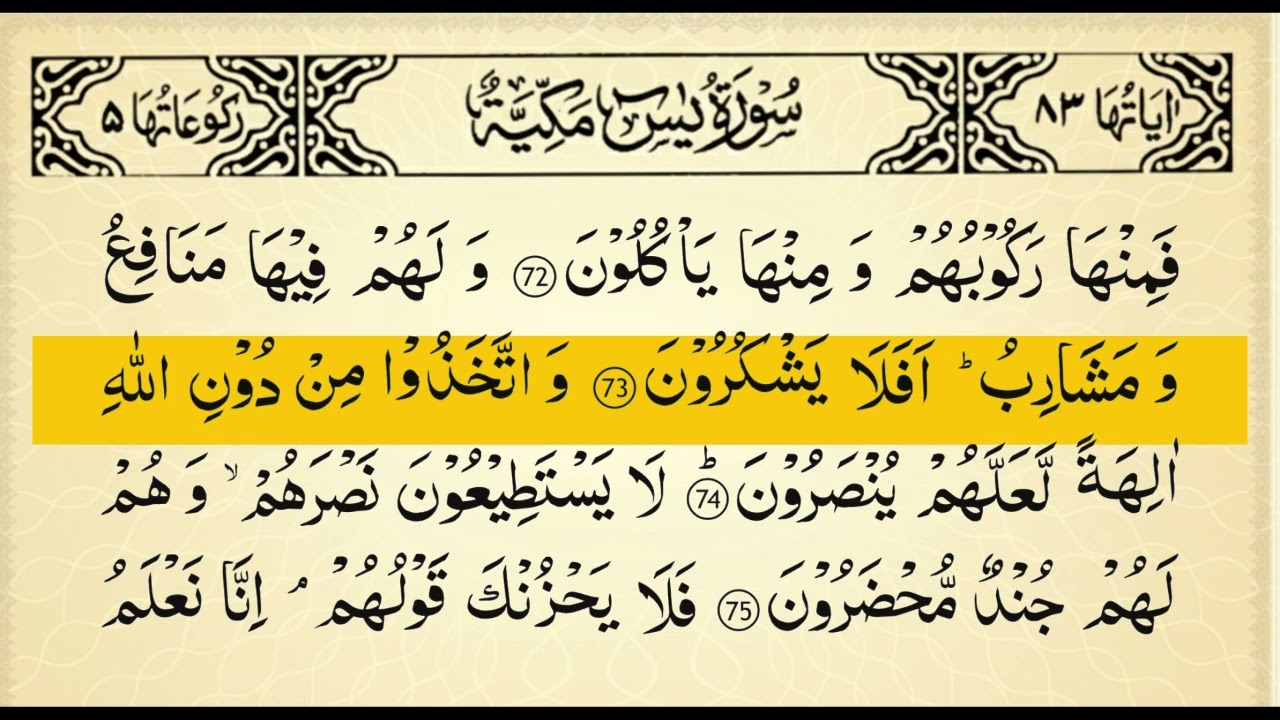 اٰیَاتُهَا ٨٣ سُوْرَةُ یٰسٓ مَكِّیَّةٌ رُكُوْعَاتُهَا ۵
فَمِنْهَا رَكُوْبُهُمْ وَ مِنْهَا یَاْكُلُوْنَ 72 وَ لَهُمْ فِیْهَا مَنَافِعُ
وَ مَشَارِبُ ؕ اَفَلَا یَشْكُرُوْنَ 73 وَ اتَّخَذُوْا مِنْ دُوْنِ اللّٰهِ
اٰلِهَةً لَّعَلَّهُمْ یُنْصَرُوْنَ ؕ 74 لَا یَسْتَطِیْعُوْنَ نَصْرَهُمْ ۙ وَ هُمْ
لَهُمْ جُنْدٌ مُّحْضَرُوْنَ 75 فَلَا یَحْزُنْكَ قَوْلُهُمْ ۘ اِنَّا نَعْلَمُ